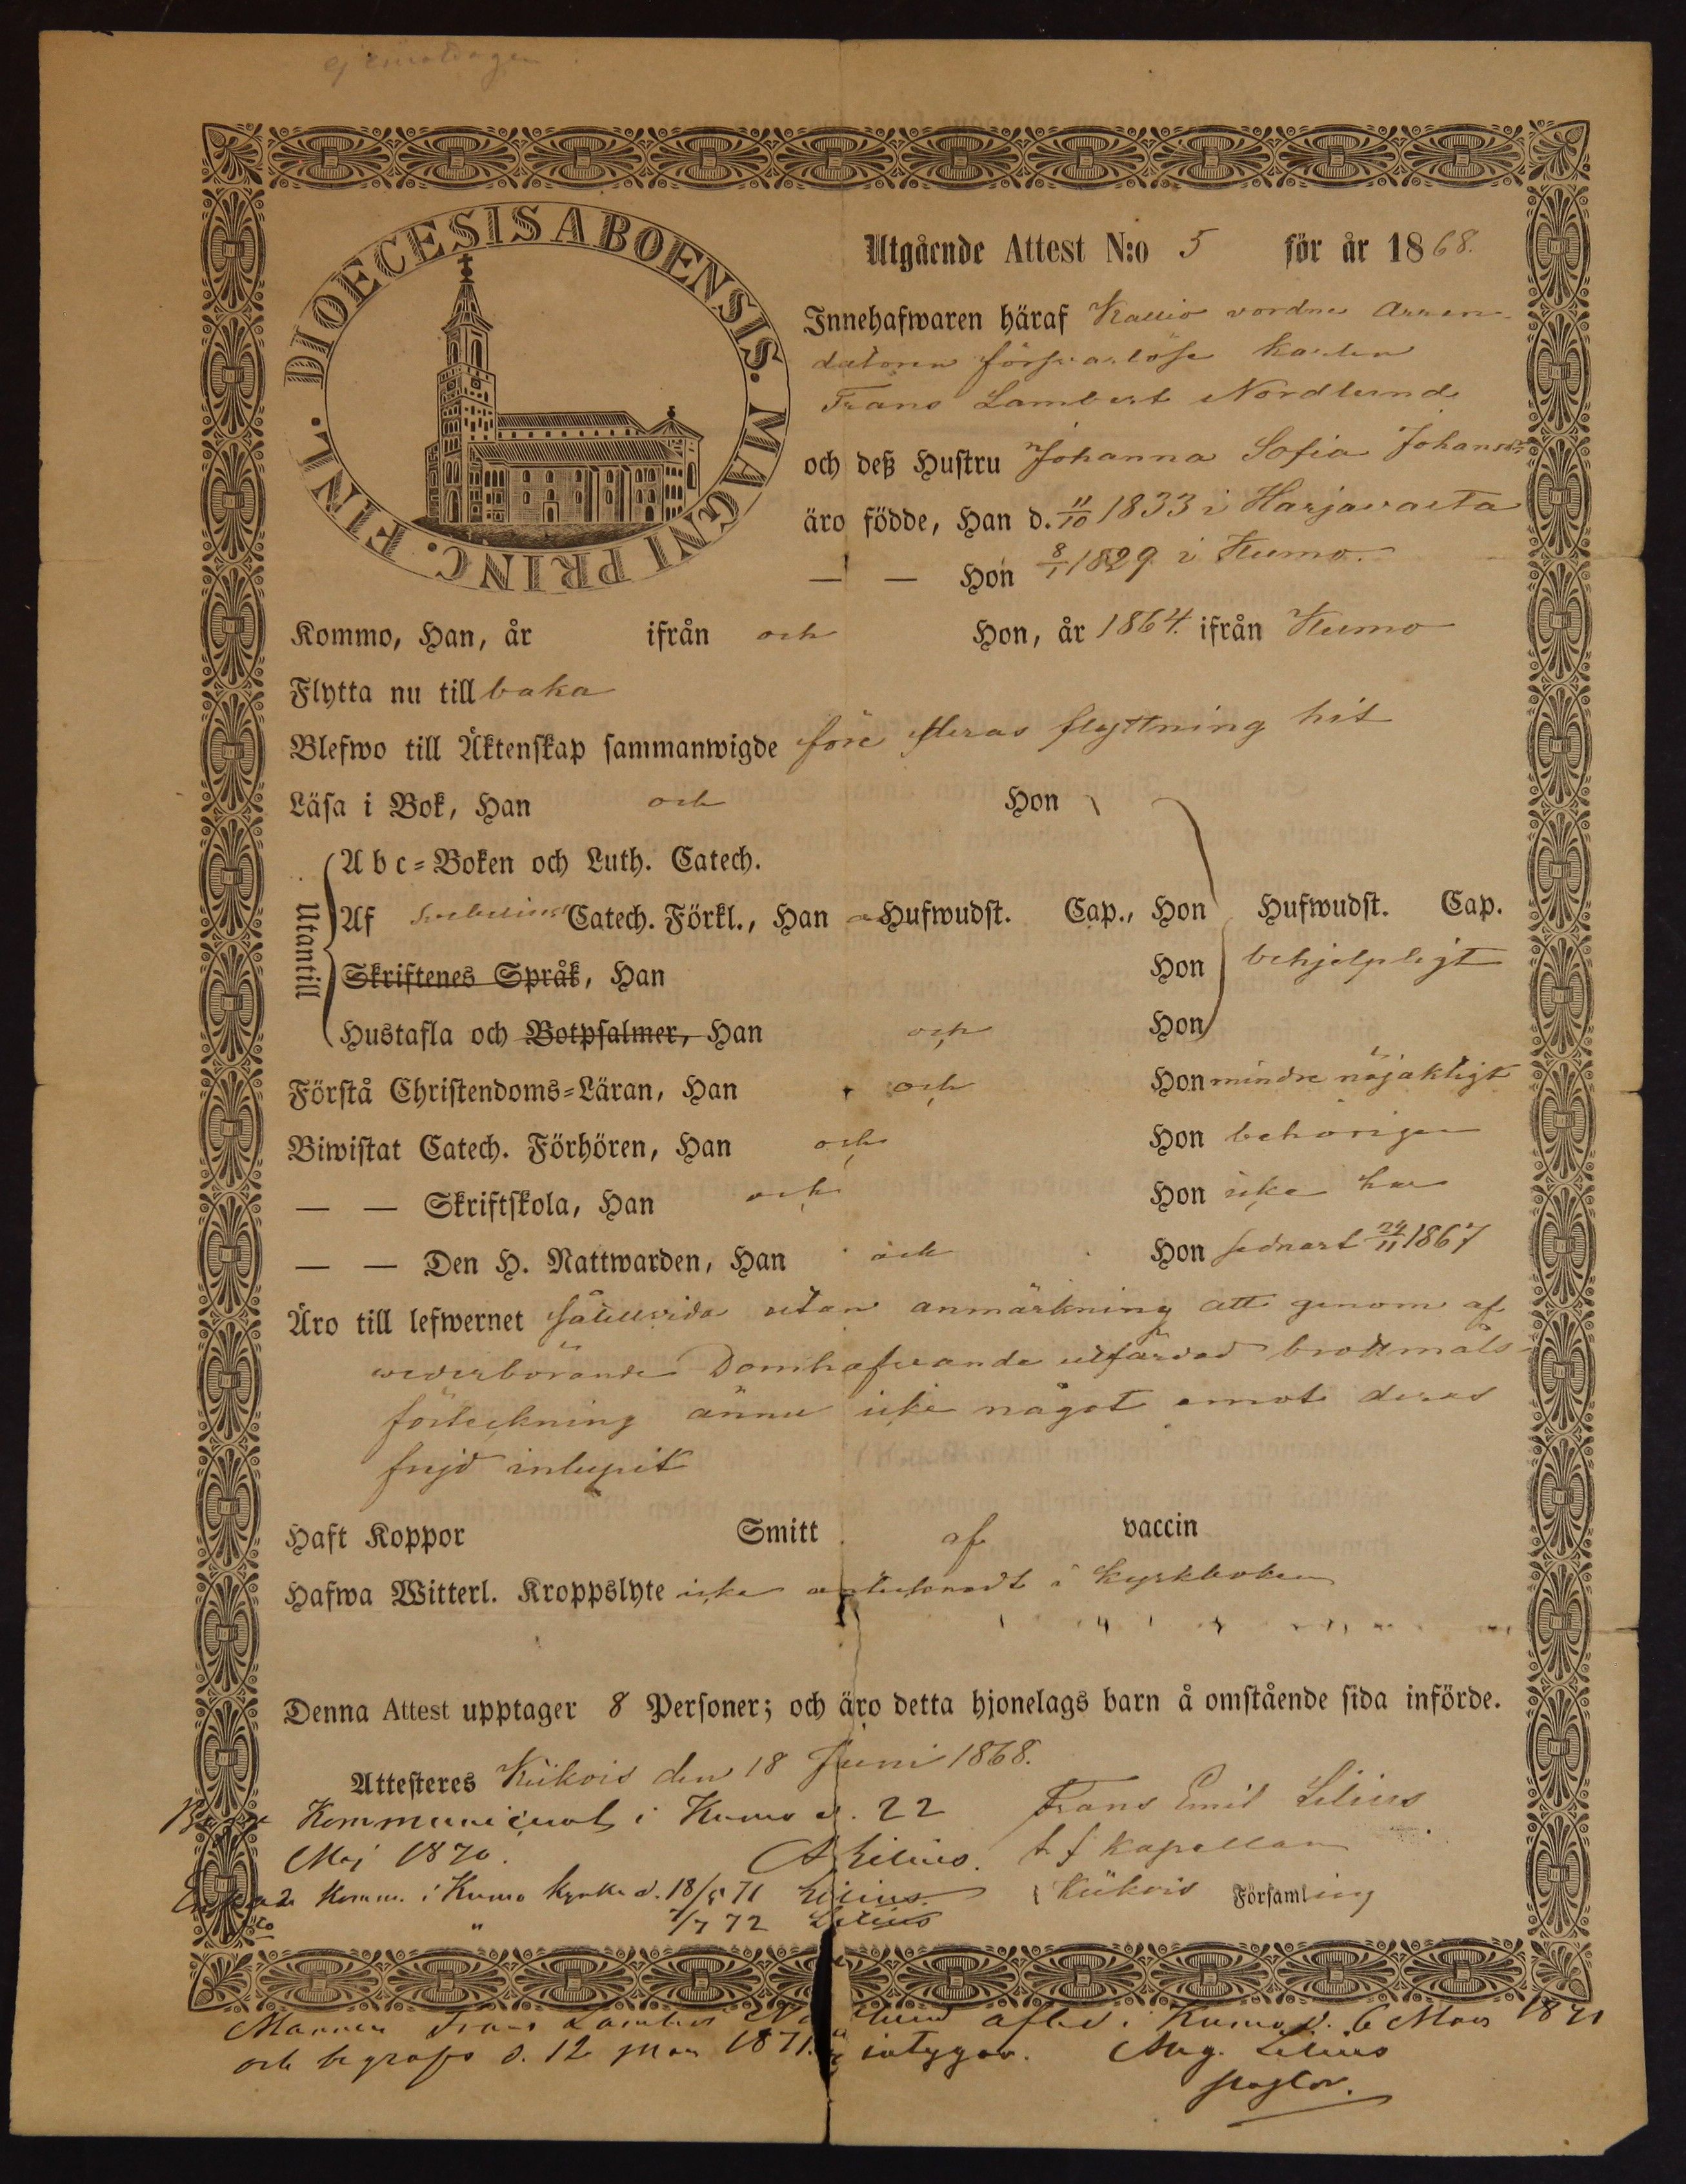 DIOECESIS ABOENSIS. MAGNI PRINC. FINL.
Utgående Attest N:o 5 för år 1868.
Innehafwaren häraf Kallio vordne Arren-
datoren förswarlöse karlen
Frans Lambert Nordlund
och deß Hustru Johanna Sofia Johansdr
äro födde, Han d. 11/10 1833 i Harjavalta
— — Hon 8/1 1829 i Kumo.
Kommo, Han, år ifrån och Hon, år 1864. ifrån Kumo
Flytta nu till baka
Blefwo till Äktenskap sammanwigde före deras flyttning hit
Läsa i Bok, Han och Hon
Utantill
A b c-Boken och Luth. Catech.
Af Catech. Förkl., Han Hufwudst. Cap., Hon Hufwudst. Cap.
Skriftenes Språk, Han Hon behjelpligt
Hustafla och Botpsalmer, Han och Hon
Förstå Christendoms-Läran, Han och Hon mindre nöjaktigt
Biwistat Catech. Förhören, Han och Hon behörigen
— — Skriftskola, Han och Hon
— — Den H. Nattwarden, Han och Hon sednast 24/11 1867
Äro till lefwernet såtillvida utan anmärkning att genom af
wederbörande Domhafvande utfärdad brottmåls-
förteckning ännu icke något emot deras
frejd inlupit
Haft Koppor Smitt af vaccin
Hafwa Witterl. Kroppslyte icke antecknadt i kyrkboken
Denna Attest upptager 8 Personer; och äro detta hjonelags barn å omstående sida införde.
Attesteres Kiikois den 18 Juni 1868.
Kommunicerat i Kumo d. 22 Frans Emil Lilius
Maj 1870. A Lilius. t f Kapellan
Enkan Komm. i Kumo kyrka d. 18/5 71 Lilius. i Kiikois Församling
" 7/7 72 Lilius
Mannen Frans Lambert Nordlund afled i Kumo d. 6 Mars 1871
och begrafs d. 12 Mars 1871. intygar. Aug. Lilius
Pastor.